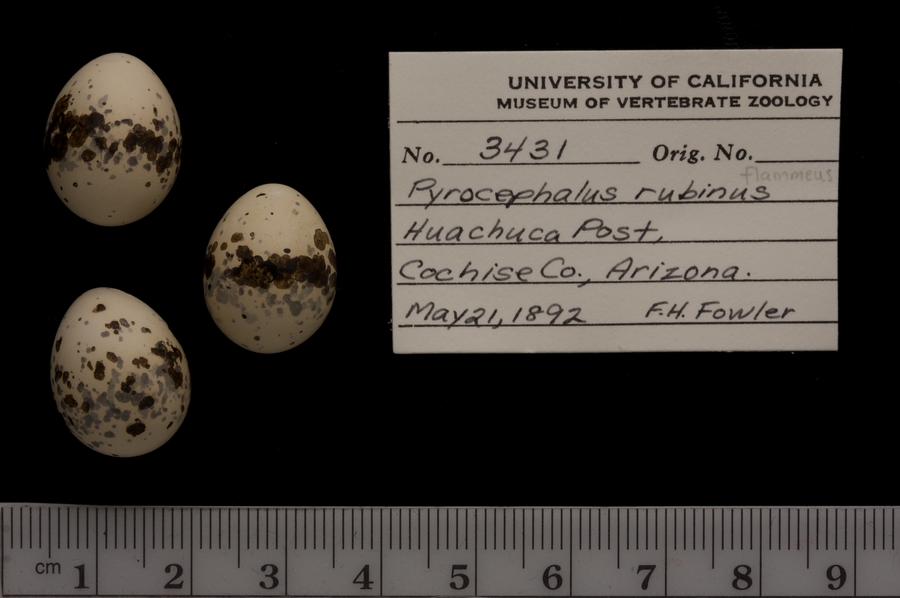 UNIVERSITY OF CALIFORNIA
MUSEUM OF VERTEBRATE ZOOLOGY
No. 3431 Orig. No.
flammeus
Pyrocephalus rubinus
Huachuca Post,
Cochise Co., Arizona.
May 21, 1892 F.H. Fowler
cm 1 2 3 4 5 6 7 8 9